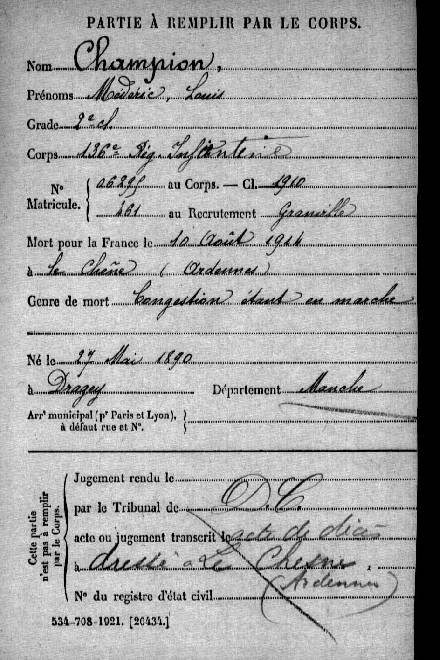 PARTIE À REMPLIR PAR LE CORPS.
Nom Champion,
Prénoms Médéric, Louis
Grade 2e cl.
Corps 136e Rég. Infanterie
N° Matricule. { 06295 au Corps. — Cl. 1910
461 au Recrutement Granville
Mort pour la France le 10 Août 1914
à Le Chêne (Ardennes)
Genre de mort Congestion étant en marche
Né le 27 Mai 1890
à Dragey Département Manche
Arrt municipal (pr Paris et Lyon), }
à défaut rue et N°.
Cette partie n'est pas à remplir par le Corps.
Jugement rendu le
par le Tribunal de D.C.
acte ou jugement transcrit le acte de décès
à dressé à Le Chesne,
(Ardennes)
N° du registre d'état civil
534-708-1921. [26434.]